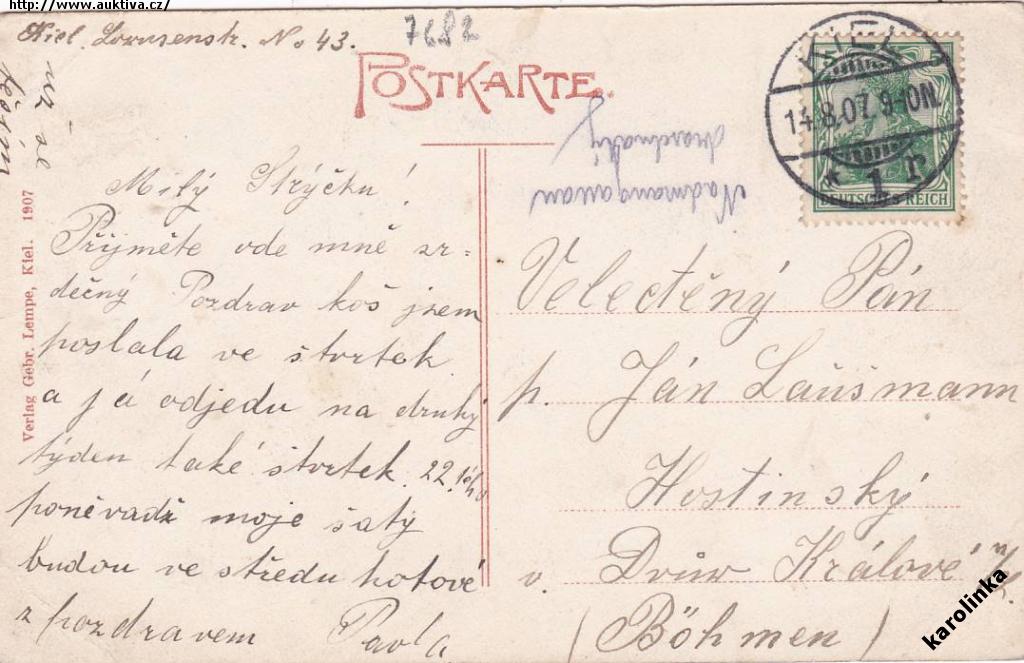 http://www.auktiva.cz/
Kiel. Lornsenstr. No 43.
7682
POSTKARTE.
KIEL
14.8.07. 9-10N.
* 1 r
DEUTSCHES REICH
Milý Strýčku!
Přijměte ode mně sr=
děčný Pozdrav koš jsem
poslala ve štvrtek
a já odjedu na druhy
týden také štvrtek. 22.
poněvadž moje šatý
budou ve středu hotové
z pozdravem Pavla
už se
těším
Velectěný Pán
p. Ján Laušmann
Hostinský
v. Dvůr Králové n/L.
(Böhmen)
Verlag Gebr. Lempe, Kiel. 1907
karolinka